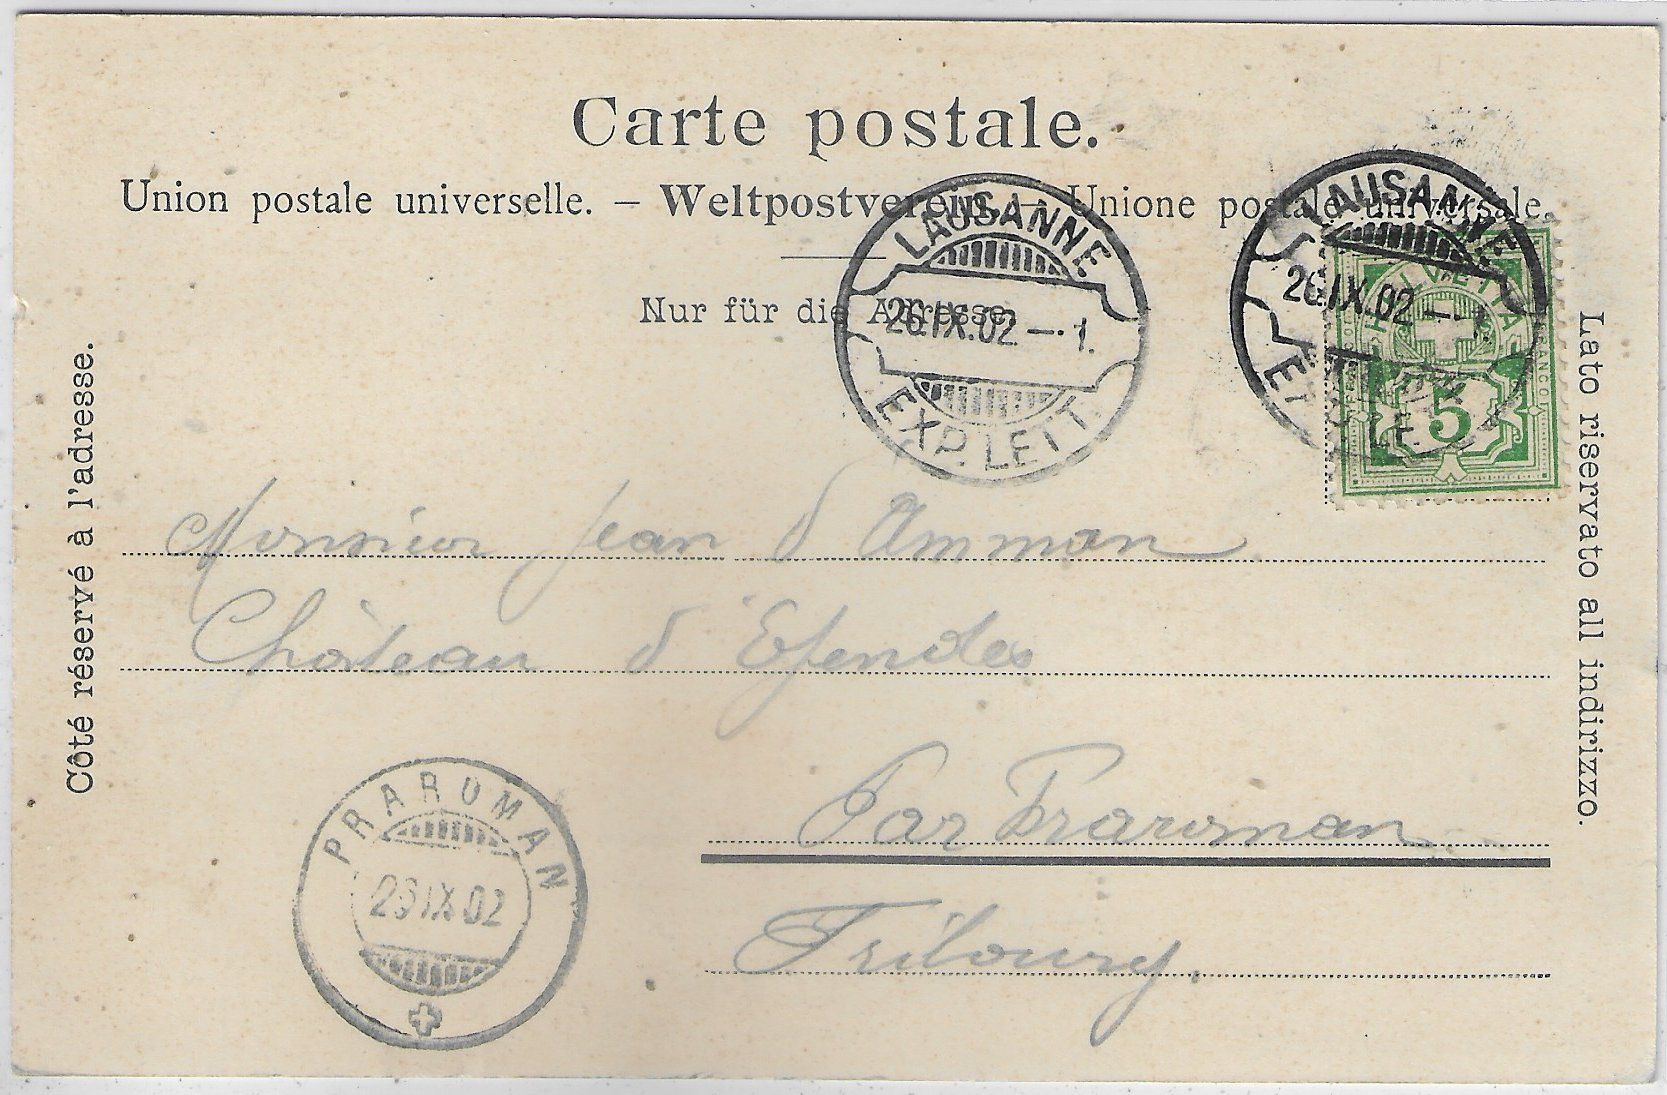 Carte postale.
Union postale universelle. – Weltpostverein. – Unione postale universale.
Nur für die Adresse.
Côté réservé à l'adresse.
Lato riservato all indirizzo.
LAUSANNE
26.IX.02 –·1.
EXP. LETT.
LAUSANNE
26.IX.02 –·1.
EXP. LETT.
HELVETIA
FRANCO
5
Monsieur Jean d'Amman
Château d'Ependes
Par Praroman
Fribourg.
PRAROMAN
26 IX 02